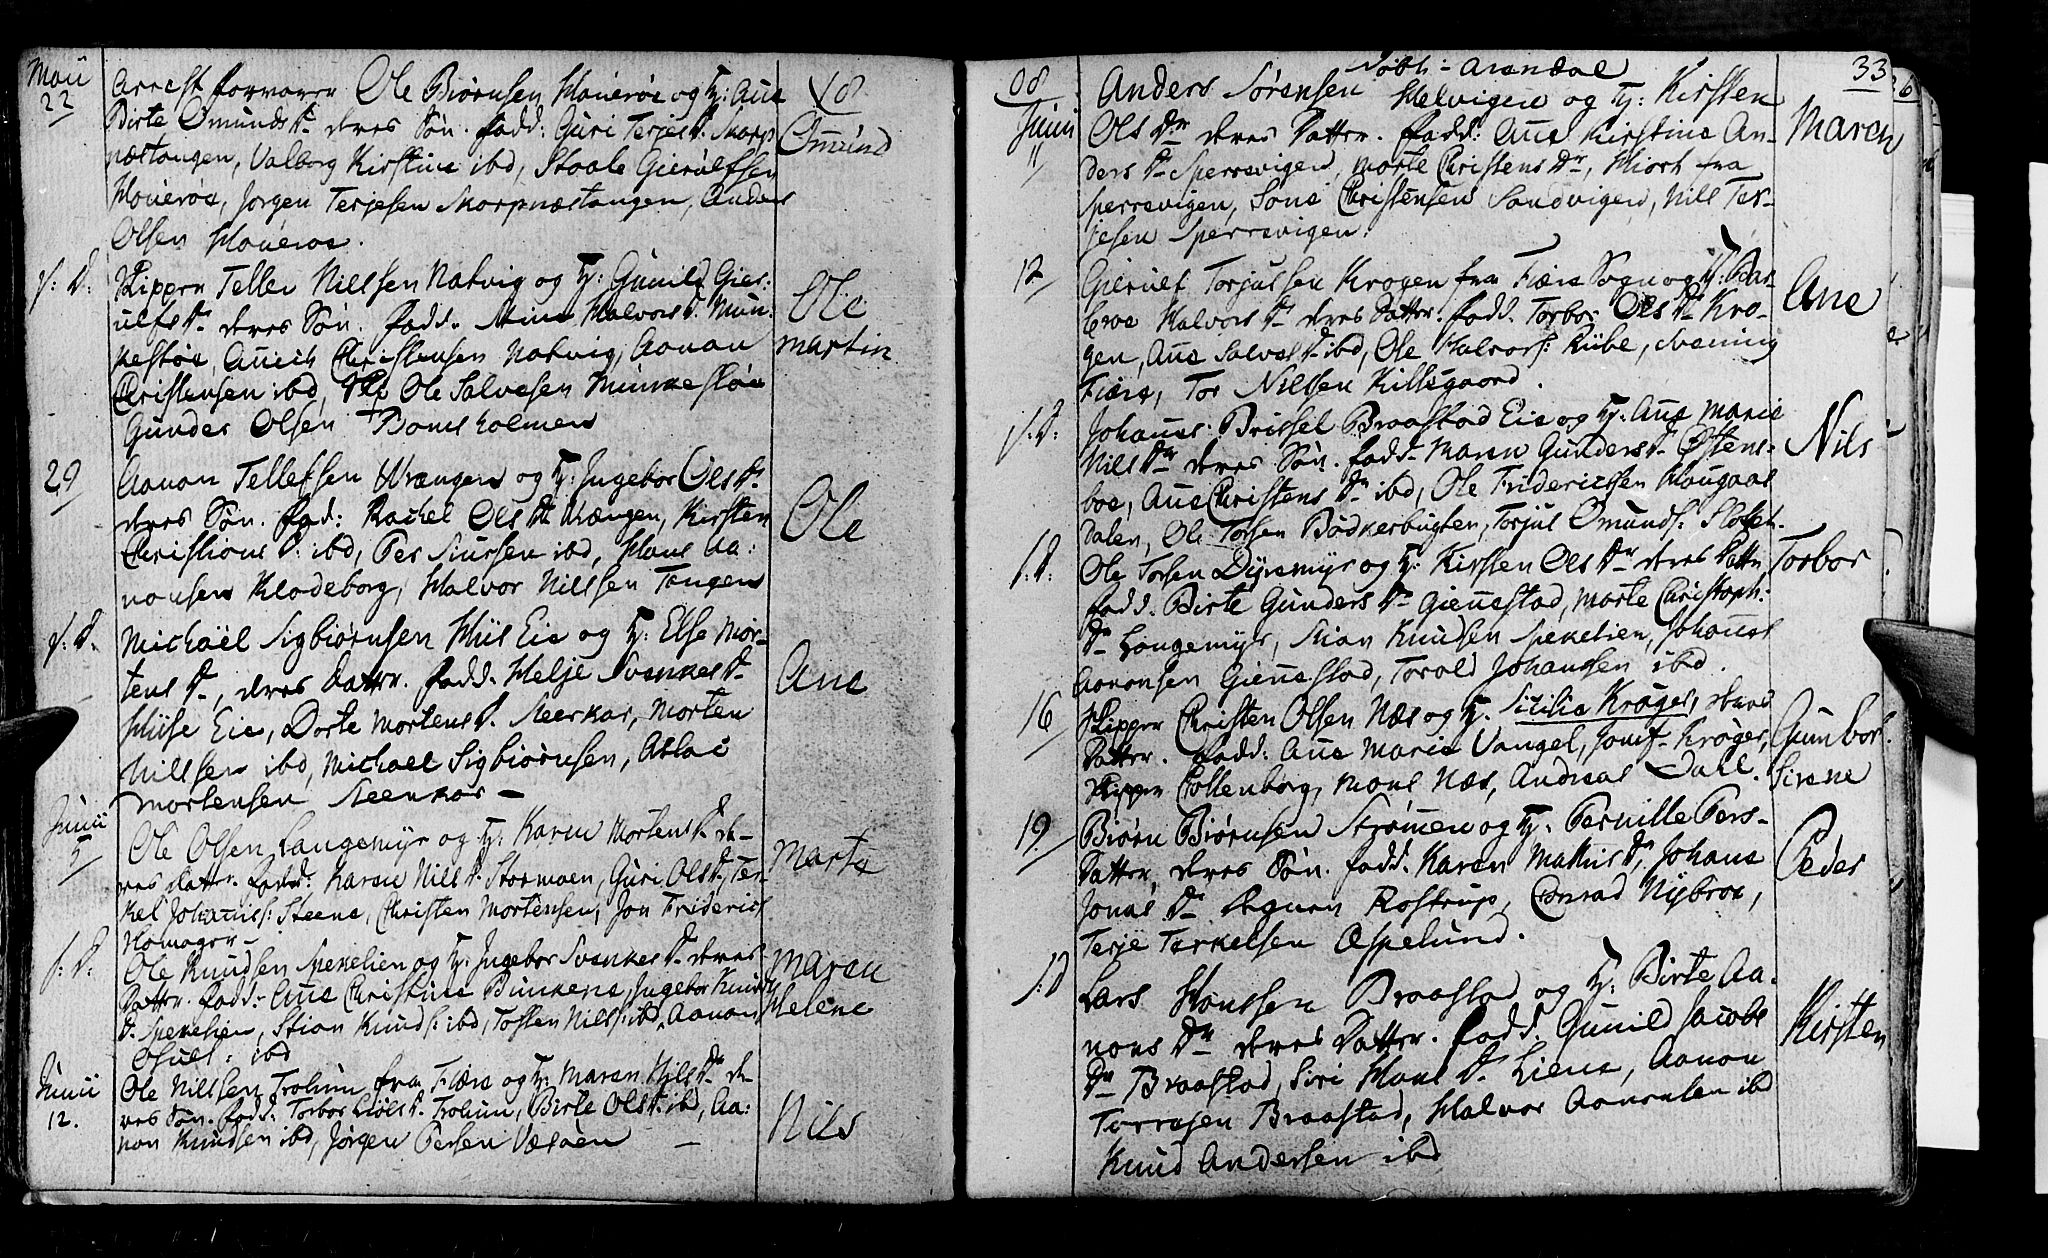 Maii
22
Arrest forvarer Ole Biørnsen Hauerøe og H: Ane
18
Birte Omunds D. deres Søn. fadd: Guri Terjes D. Skarp
Omund
næstangen, Valborg Kirstine ibd, Staale Gierulfsen
Hauerøe, Jørgen Terjesen Skarpnæstangen, Anders
Olsen Hauerøe.
s. D. Skipper Tellef Nielsen Natvig og H: Gunild Gier-
Ole
ulfs D. deres Søn. fadd. Stine Halvors D. Mun-
martin
kestøe, Christensen Natvig, Aanon
Christensen ibd, Ole Salvesen Munkestøe
Gunder Olsen Bomsholmen
29 Aanon Tellefsen Wrængen og H: Ingebor Ols D.
Ole
deres Søn. fad: Rachel Ols D. Wrængen, Kirsten
Christians D. ibd, Per Siursen ibd, Hans Aa:
nonsen Klodeborg, Halvor Nilssen Tangen
s. D. Michaël Sigbiørnsen Huus Eie og H: Else Mor-
tens D., deres Datter. fadd. Helje Svenkes D.
Ane
Huse Eie, Dorte Mortens D. Neerkar, Morten
Nilssen ibd, Michael Sigbiørnsen, Aslac
Mortensen Neerkar —
Junii
5
Ole Olsen Langemyr og H: Karen Mortens D. de-
res Datter. fadd: Karen Nils D. Stormoen, Guri Ols D., Ter-
Marte
kel Johans: Steene, Christen Mortensen, Jon Friderics
Homager —
s: D: Ole Knudsen Spekelien og H: Ingebor Svenkes D. deres
Maren
Datter. fadd: Ane Christine Bunkene, Ingebor Knuds
Helene
D. Spekelien, Stian Knuds: ibd, Tosten Nils: ibd, Aanon
ibd
Junii
12.
Ole Nilssen Trolium fra Fiære og H: Maren Nils D. de-
res Søn. fadd: Torbor D. Trolium, Birte Ols D. ibd, Aa:
Nils
non Knudsen ibd, Jørgen Persen Væsøen —
33
08
Junii
11
Søbth: Arendal
Anders Sørensen Helvigen og H: Kirsten
Maren
Ols Dr. deres Datter. fadd: Ane Kirstine An-
ders D. Sperrevigen, Marte Christens Dr, Hiort fra
Sperrevigen, Søne Christensen Sandvigen, Nill Ter-
jesen Sperrevigen.
12 Gierulf Torjussen Krogen fra Fiære Sogn og H: Bar-
Ane
broe Halvors D. deres Datter. fadd. Torbor Ols D. Kro-
gen, Ane Salves D. ibd, Ole Halvors: Rübe, Svening
Fiære, Tor Nilssen Killsgaard.
s. D: Johannes: Brissel Braastad Eie og H: Ane Marie
Nils
Nils Dr. deres Søn. fadd. Maren Gunders D. Østens-
boe, Ane Christens Dr. ibd, Ole Friderichsen Haugaas
Dalen, Ole Torsen Bødkerbugten, Torjus Omunds:
s. D: Ole Torsen Dyremyr og H: Kirsten Ols Dr. deres Datter
Torbor
fadd. Birte Gunders D. Giennestad, Marte Christoph:
D. Langemyr, Stian Knudsen Spekelien, Johannes
Aanonsen Giennestad, Torald Johansen ibd.
16 Skipper Christen Olsen Næs og H. Sicilia Krøger, deres
Gunbor
Datter. fadd: Ane Marie Vangel, Jomf. Krøger,
Sirene
Skipper Collenborg, Mons Næs, Andreas Dahl.
19. Biørn Biørnsen Strømen og H: Pernille Pers-
Datter, deres Søn. fadd. Karen Mathis D., Johane
Peder
Jonas D. Rostrup, Conrad Nybroe,
Terje Terkelsen Espelund.
s: D Lars Hansen Braastad og H: Birte Aa-
nons Dr. deres Datter. fadd. Gunild Jacobs
Kirsten
Dr. Braastad, Siri Hans D. Liene, Aanon
Terresen Braastad, Halvor Aanonsen ibd
Knud Andersen ibd